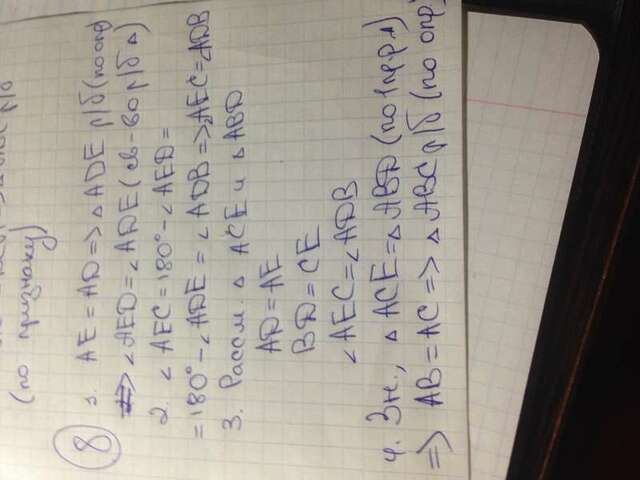 (по признаку)
8
1. AE = AD => △ ADE р/б (по опр)
=> ∠AED = ∠ADE (св-во р/б △)
2. ∠ AEC = 180° - ∠AED =
= 180° - ∠ADE = ∠ADB => ∠AEC = ∠ADB
3. Рассм. △ ACE и △ABD
AD = AE
BD = CE
∠AEC = ∠ADB
4. Зн., △ ACE = △ABD (по 1 пр. р △)
=> AB = AC => △ ABC р/б (по опр)